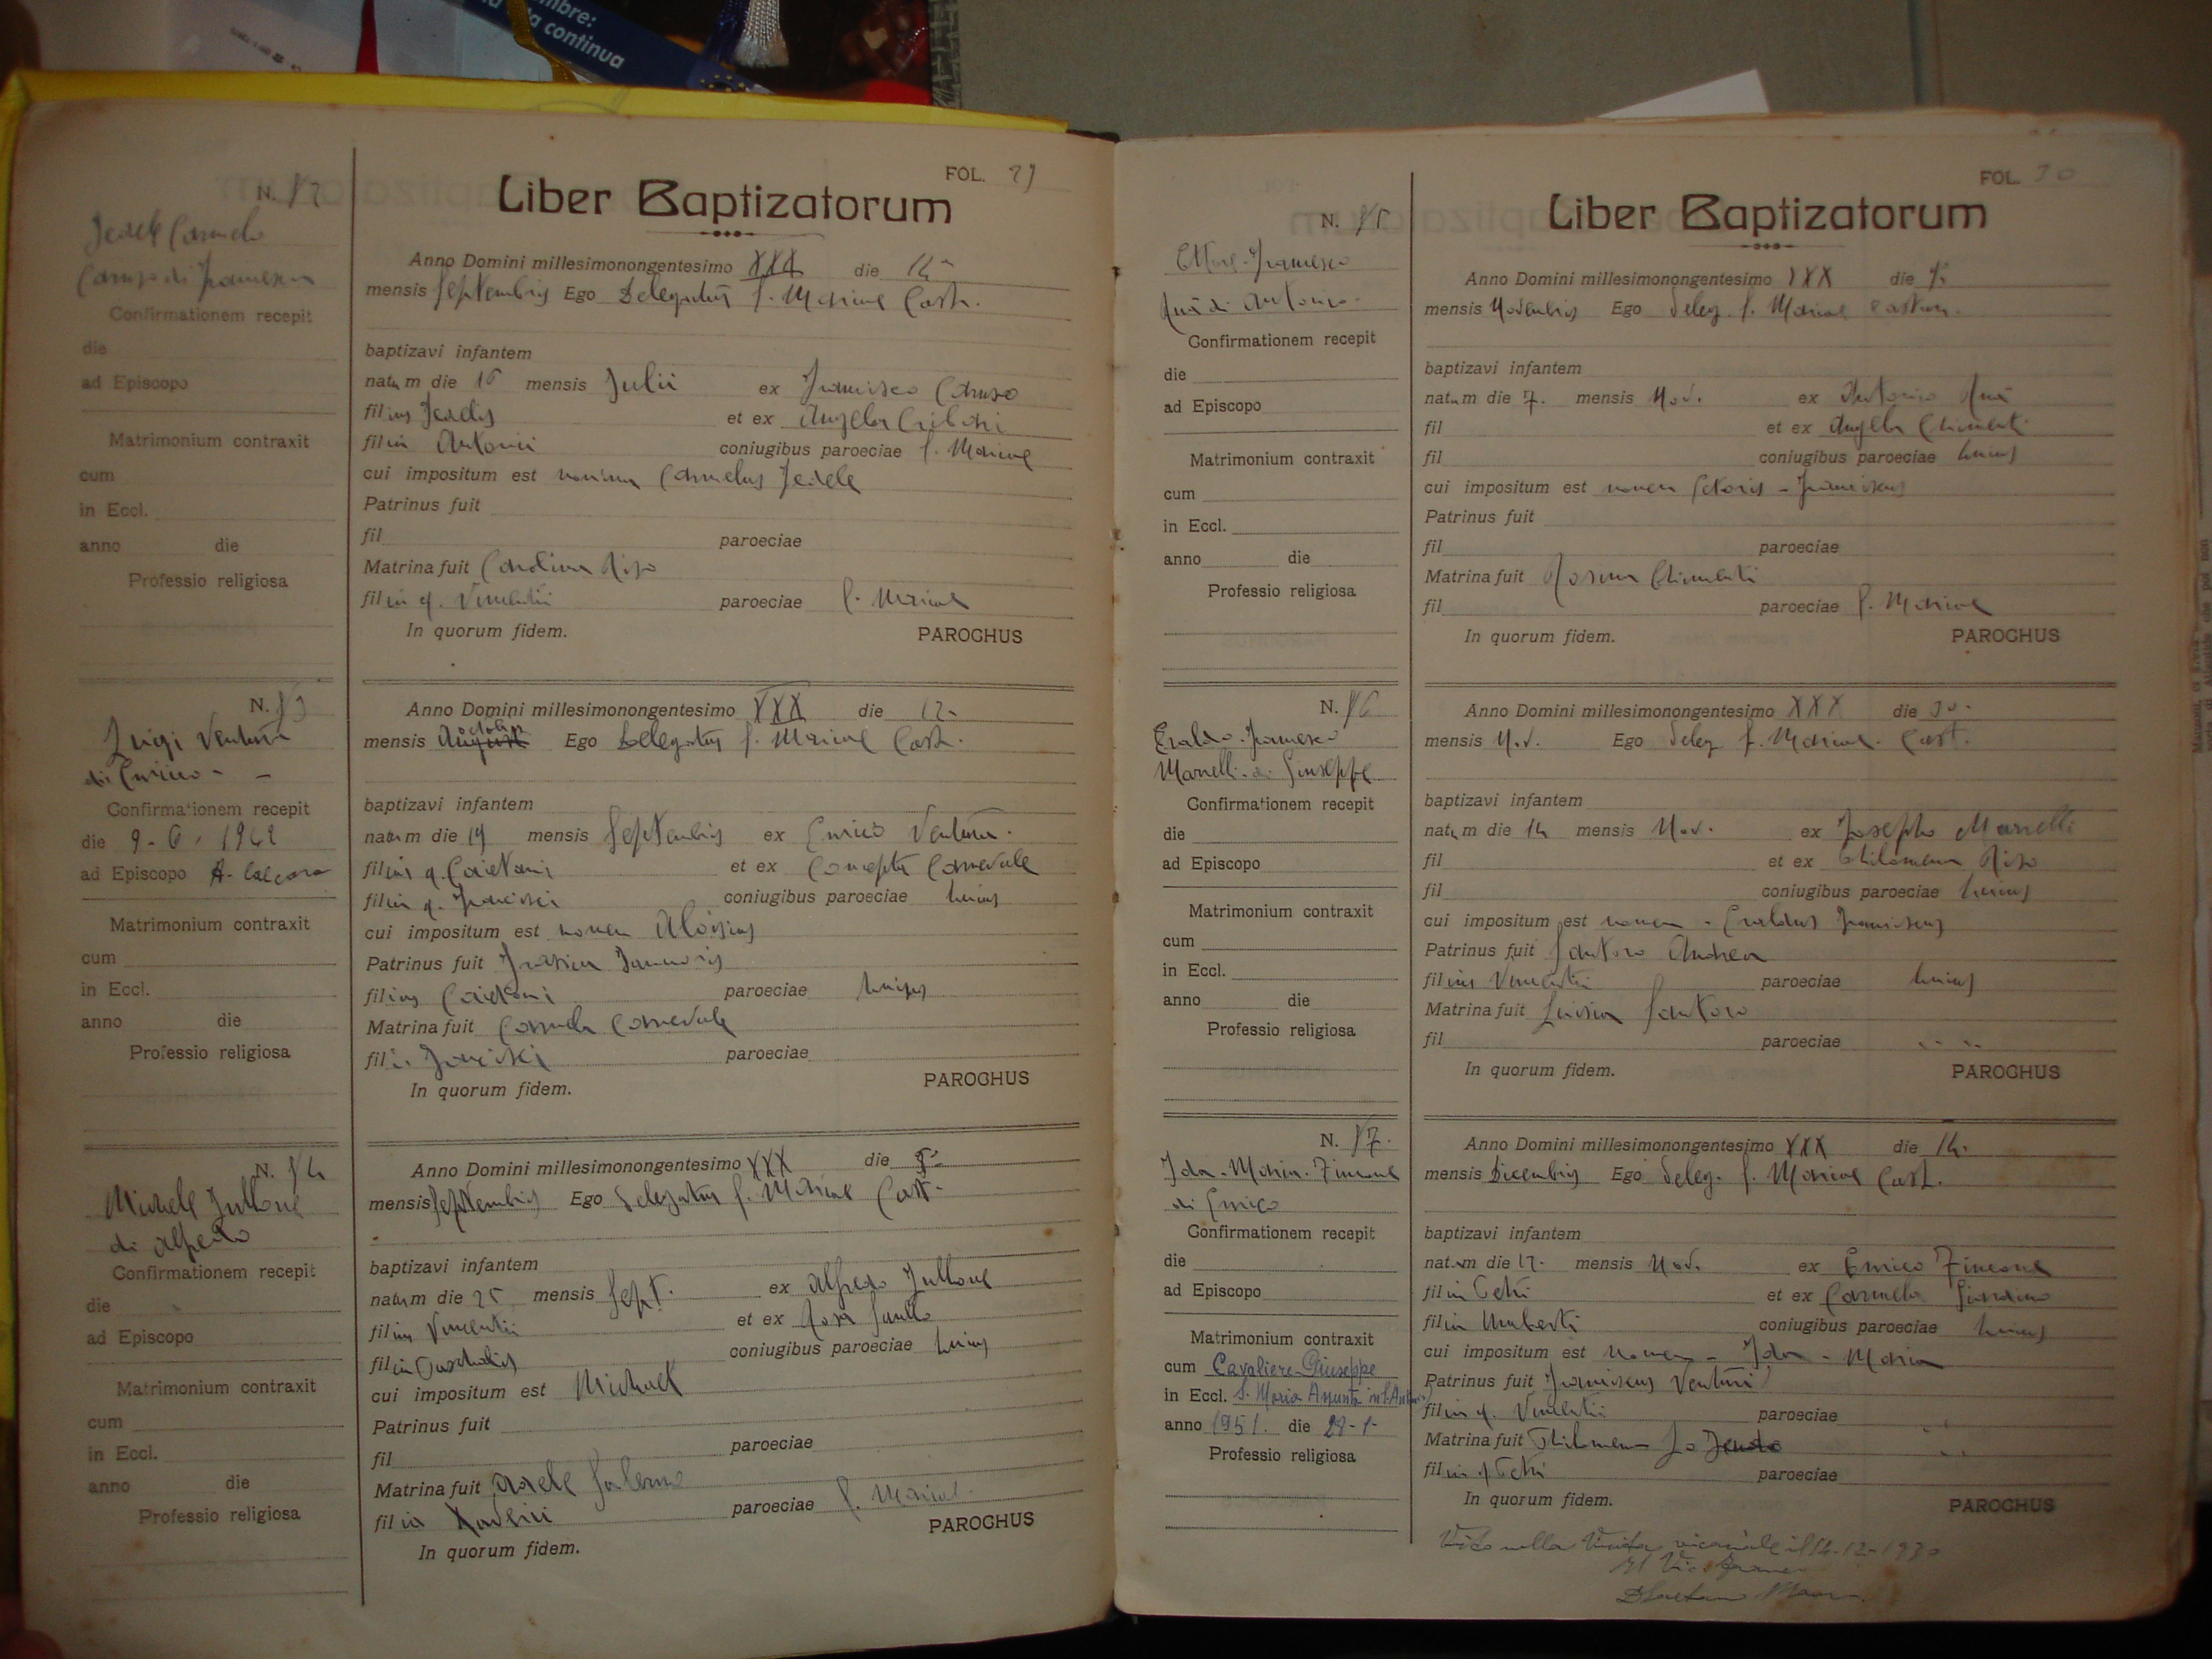 mbre:
continua
N. 82
Fedele Carmelo
Caruso di Francesco
Confirmationem recepit
die
ad Episcopo
Matrimonium contraxit
cum
in Eccl.
anno die
Professio religiosa
FOL. 29
Liber Baptizatorum
Anno Domini millesimonongentesimo XXX die 14
mensis Septembris Ego Delegatus S. Marine Cast.
baptizavi infantem
natum die 16 mensis Julii ex Francisco Caruso
filius Fedelis et ex Angela
filia Antonii coniugibus paroeciae S. Marine
cui impositum est nomen Carmelus Fedele
Patrinus fuit
fil paroeciae
Matrina fuit Carolina Riso
filia q. Vincentii paroeciae S. Marine
In quorum fidem. PAROCHUS
N. 83
Luigi Ventura
di Enrico
Confirmationem recepit
die 9-6-1942
ad Episcopo A. Calcara
Matrimonium contraxit
cum
in Eccl.
anno die
Professio religiosa
Anno Domini millesimonongentesimo XXX die 12
mensis October Ego Delegatus S. Marine Cast.
baptizavi infantem
natum die 19 mensis Septembris ex Enrico Ventura
filius q. Caietani et ex Concepta Carnevale
filia q. Francisci coniugibus paroeciae huius
cui impositum est nomen Aloisius
Patrinus fuit
filius Caietani paroeciae huius
Matrina fuit Carmela Carnevale
filia Francisci paroeciae
In quorum fidem. PAROCHUS
N. 84
Michele Fullone
di Alfredo
Confirmationem recepit
die
ad Episcopo
Matrimonium contraxit
cum
in Eccl.
anno die
Professio religiosa
Anno Domini millesimonongentesimo XXX die
mensis Septembris Ego Delegatus S. Marine Cast.
baptizavi infantem
natum die 25 mensis Sept. ex Alfredo Fullone
filius Vincentii et ex Rosa Saullo
filia Paschalis coniugibus paroeciae huius
cui impositum est Michael
Patrinus fuit
fil paroeciae
Matrina fuit Adele Salerno
filia paroeciae S. Marine
In quorum fidem. PAROCHUS
N. 85
Ettore-Francesco
Ruà di Antonio
Confirmationem recepit
die
ad Episcopo
Matrimonium contraxit
cum
in Eccl.
anno die
Professio religiosa
FOL. 30
Liber Baptizatorum
Anno Domini millesimonongentesimo XXX die
mensis Novembris Ego Deleg. S. Marine Castrum.
baptizavi infantem
natum die 7. mensis Nov. ex Antonio Ruà
fil et ex Angela Chimenti
fil coniugibus paroeciae huius
cui impositum est nomen - Franciscus
Patrinus fuit
fil paroeciae
Matrina fuit Rosina Chimenti
fil paroeciae S. Marine
In quorum fidem. PAROCHUS
N. 86
Eraldo-Francesco
Marrelli di Giuseppe
Confirmationem recepit
die
ad Episcopo
Matrimonium contraxit
cum
in Eccl.
anno die
Professio religiosa
Anno Domini millesimonongentesimo XXX die 30.
mensis Nov. Ego Deleg. S. Marine Cast.
baptizavi infantem
natum die 14 mensis Nov. ex Josepho Marrelli
fil et ex Philomena Riso
fil coniugibus paroeciae huius
cui impositum est nomen - Eraldus Franciscus
Patrinus fuit Santoro Andrea
filius Vincentii paroeciae huius
Matrina fuit Luisia Santoro
fil paroeciae
In quorum fidem. PAROCHUS
N. 87.
Ida-Maria-Zicone
di Enrico
Confirmationem recepit
die
ad Episcopo
Matrimonium contraxit
cum Cavaliere Giuseppe
in Eccl. S. Maria Assunta
anno 1951. die 28-1-
Professio religiosa
Anno Domini millesimonongentesimo XXX die 14.
mensis Dicembris Ego Deleg. S. Marine Cast.
baptizavi infantem
natum die 17. mensis Nov. ex Enrico
filiu Petri et ex Carmela Giordano
filia Umberti coniugibus paroeciae huius
cui impositum est nomen - Ida - Maria
Patrinus fuit Franciscus Venturi
filius q. Vincentii paroeciae
Matrina fuit Philomena
filia q. Petri paroeciae
In quorum fidem. PAROCHUS
Visto nella Visita vicariale il 14-12-1930
Il Vic.
D. Gaetano